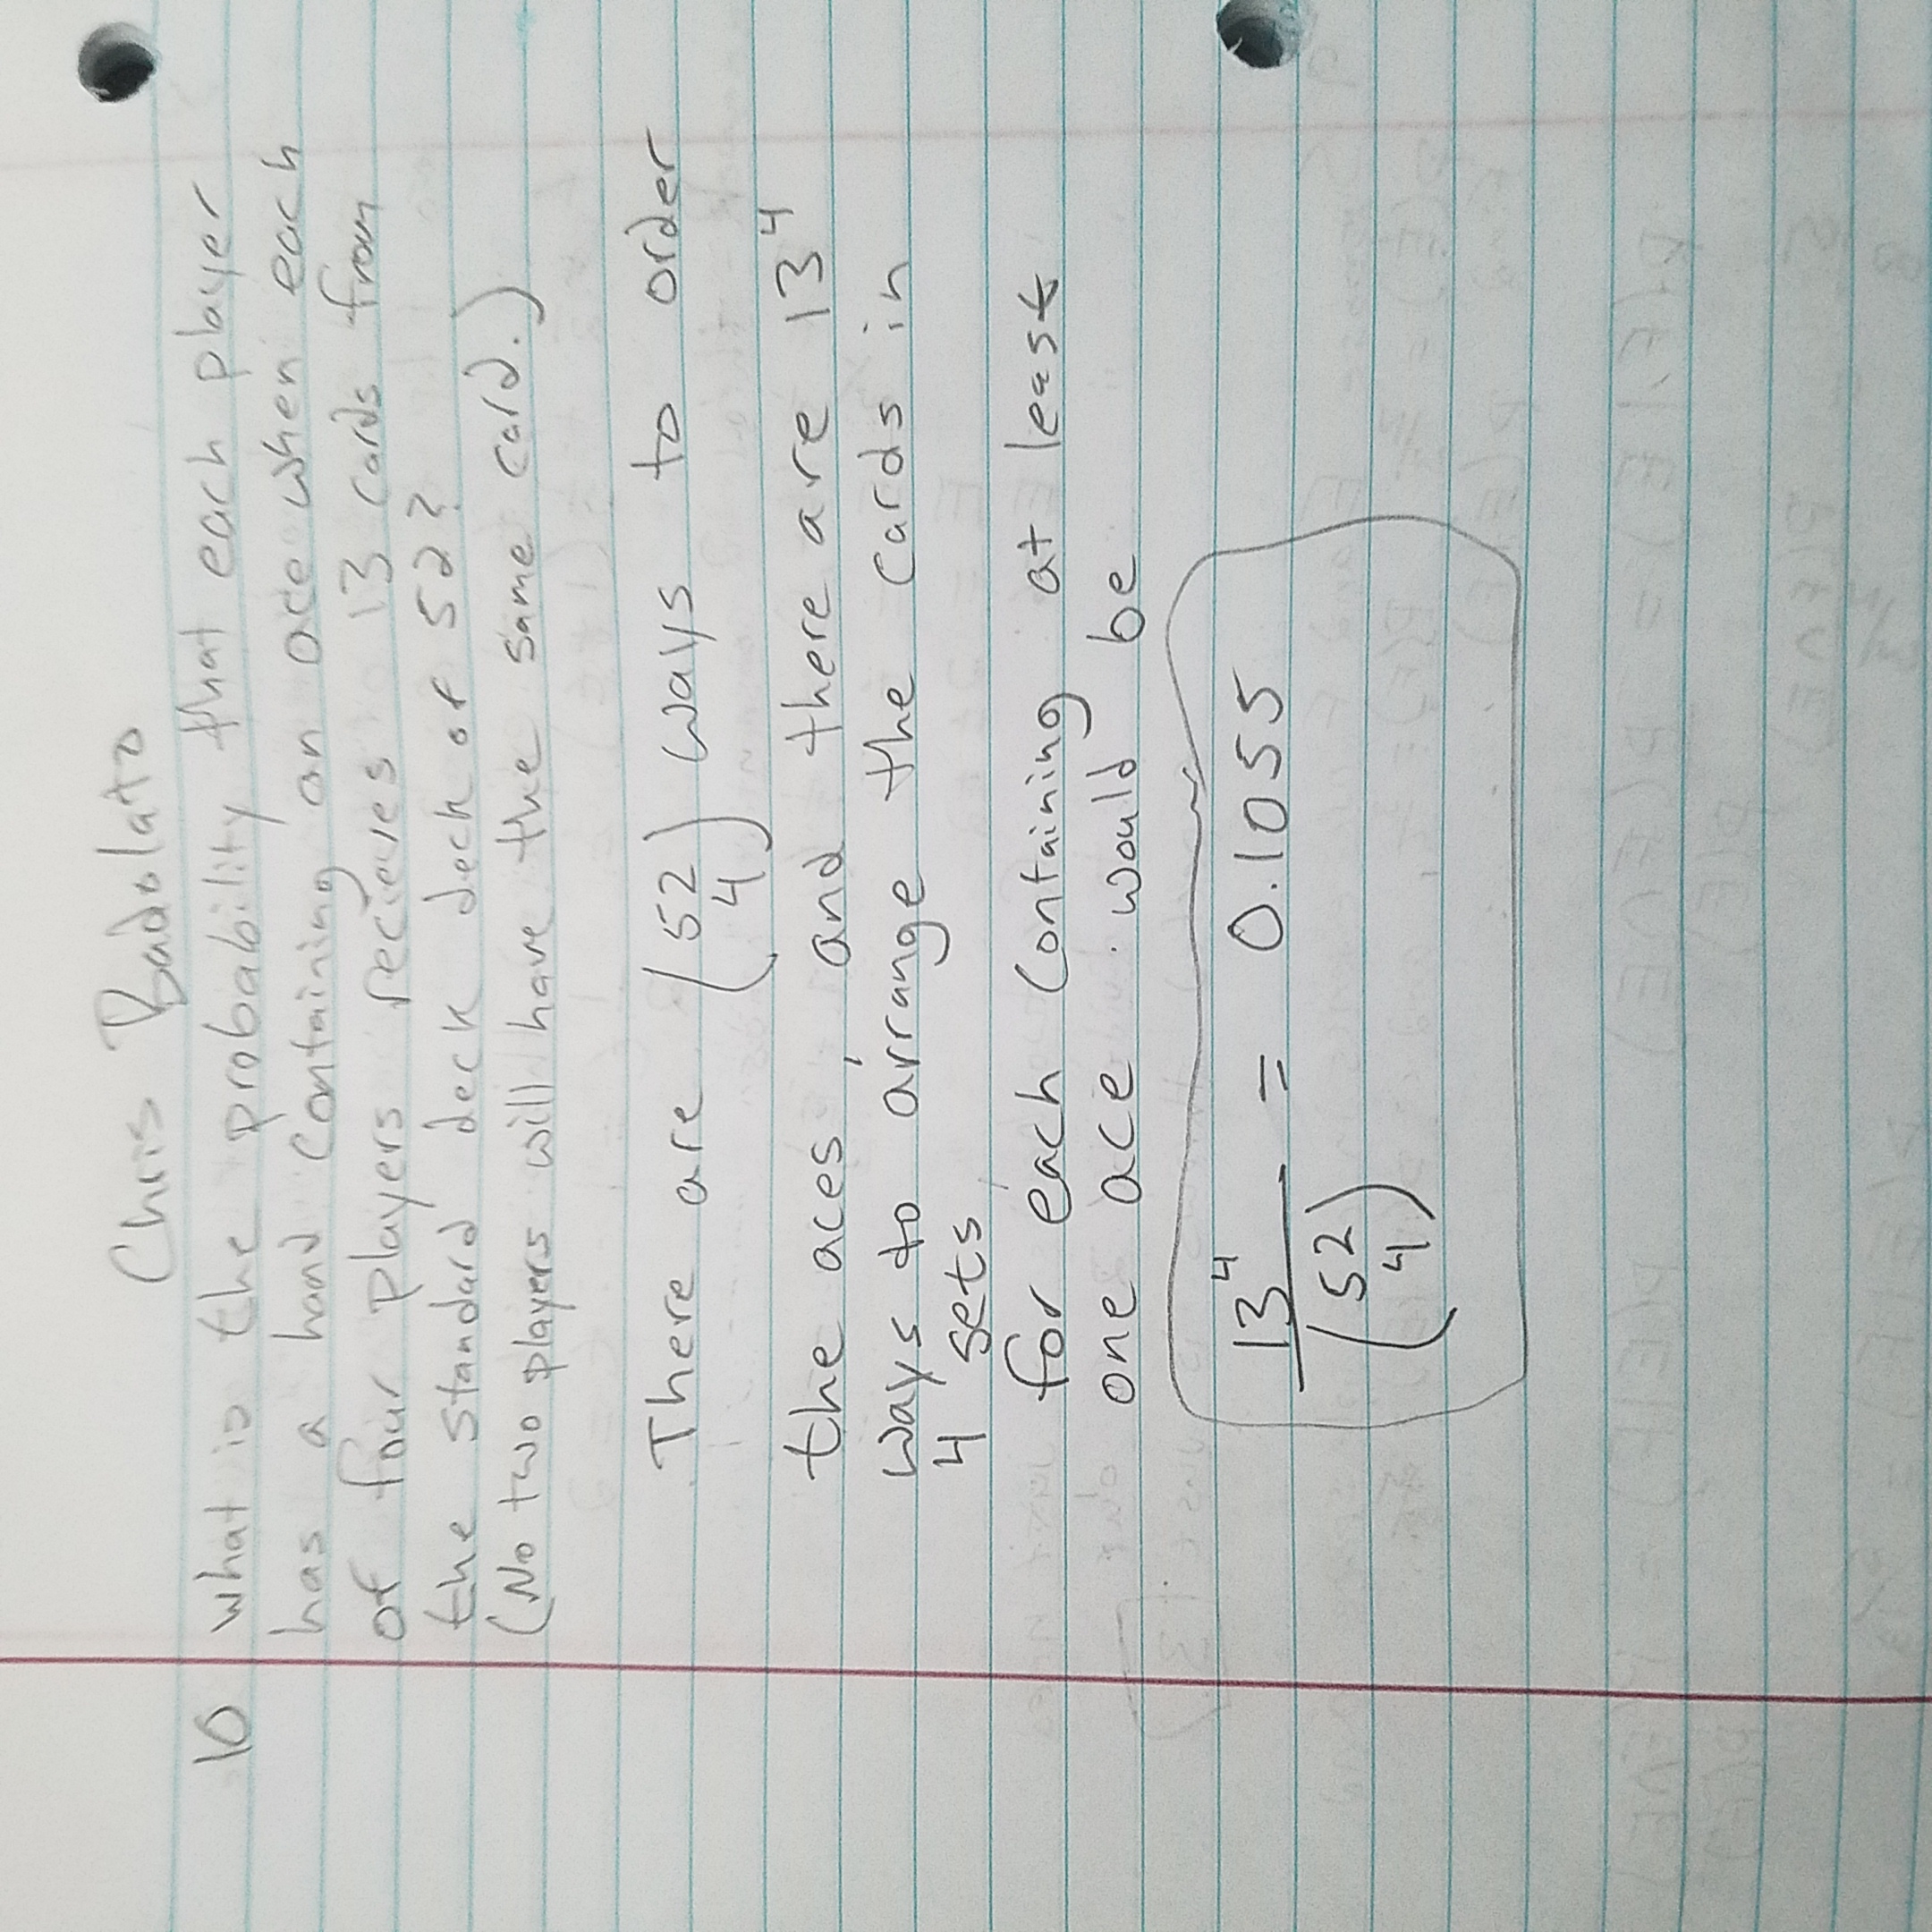 Chris Badolato
10 What is the probability that each player
has a hand containing an ace when each
of four players recieves 13 cards from
the standard deck deck of 52?
(No two players will have the same card.)
There are (52 4) ways to order
the aces, and there are 13^4
ways to arrange the cards in
4 sets
for each containing at least
one ace would be
13^4 / (52 4) = 0.1055